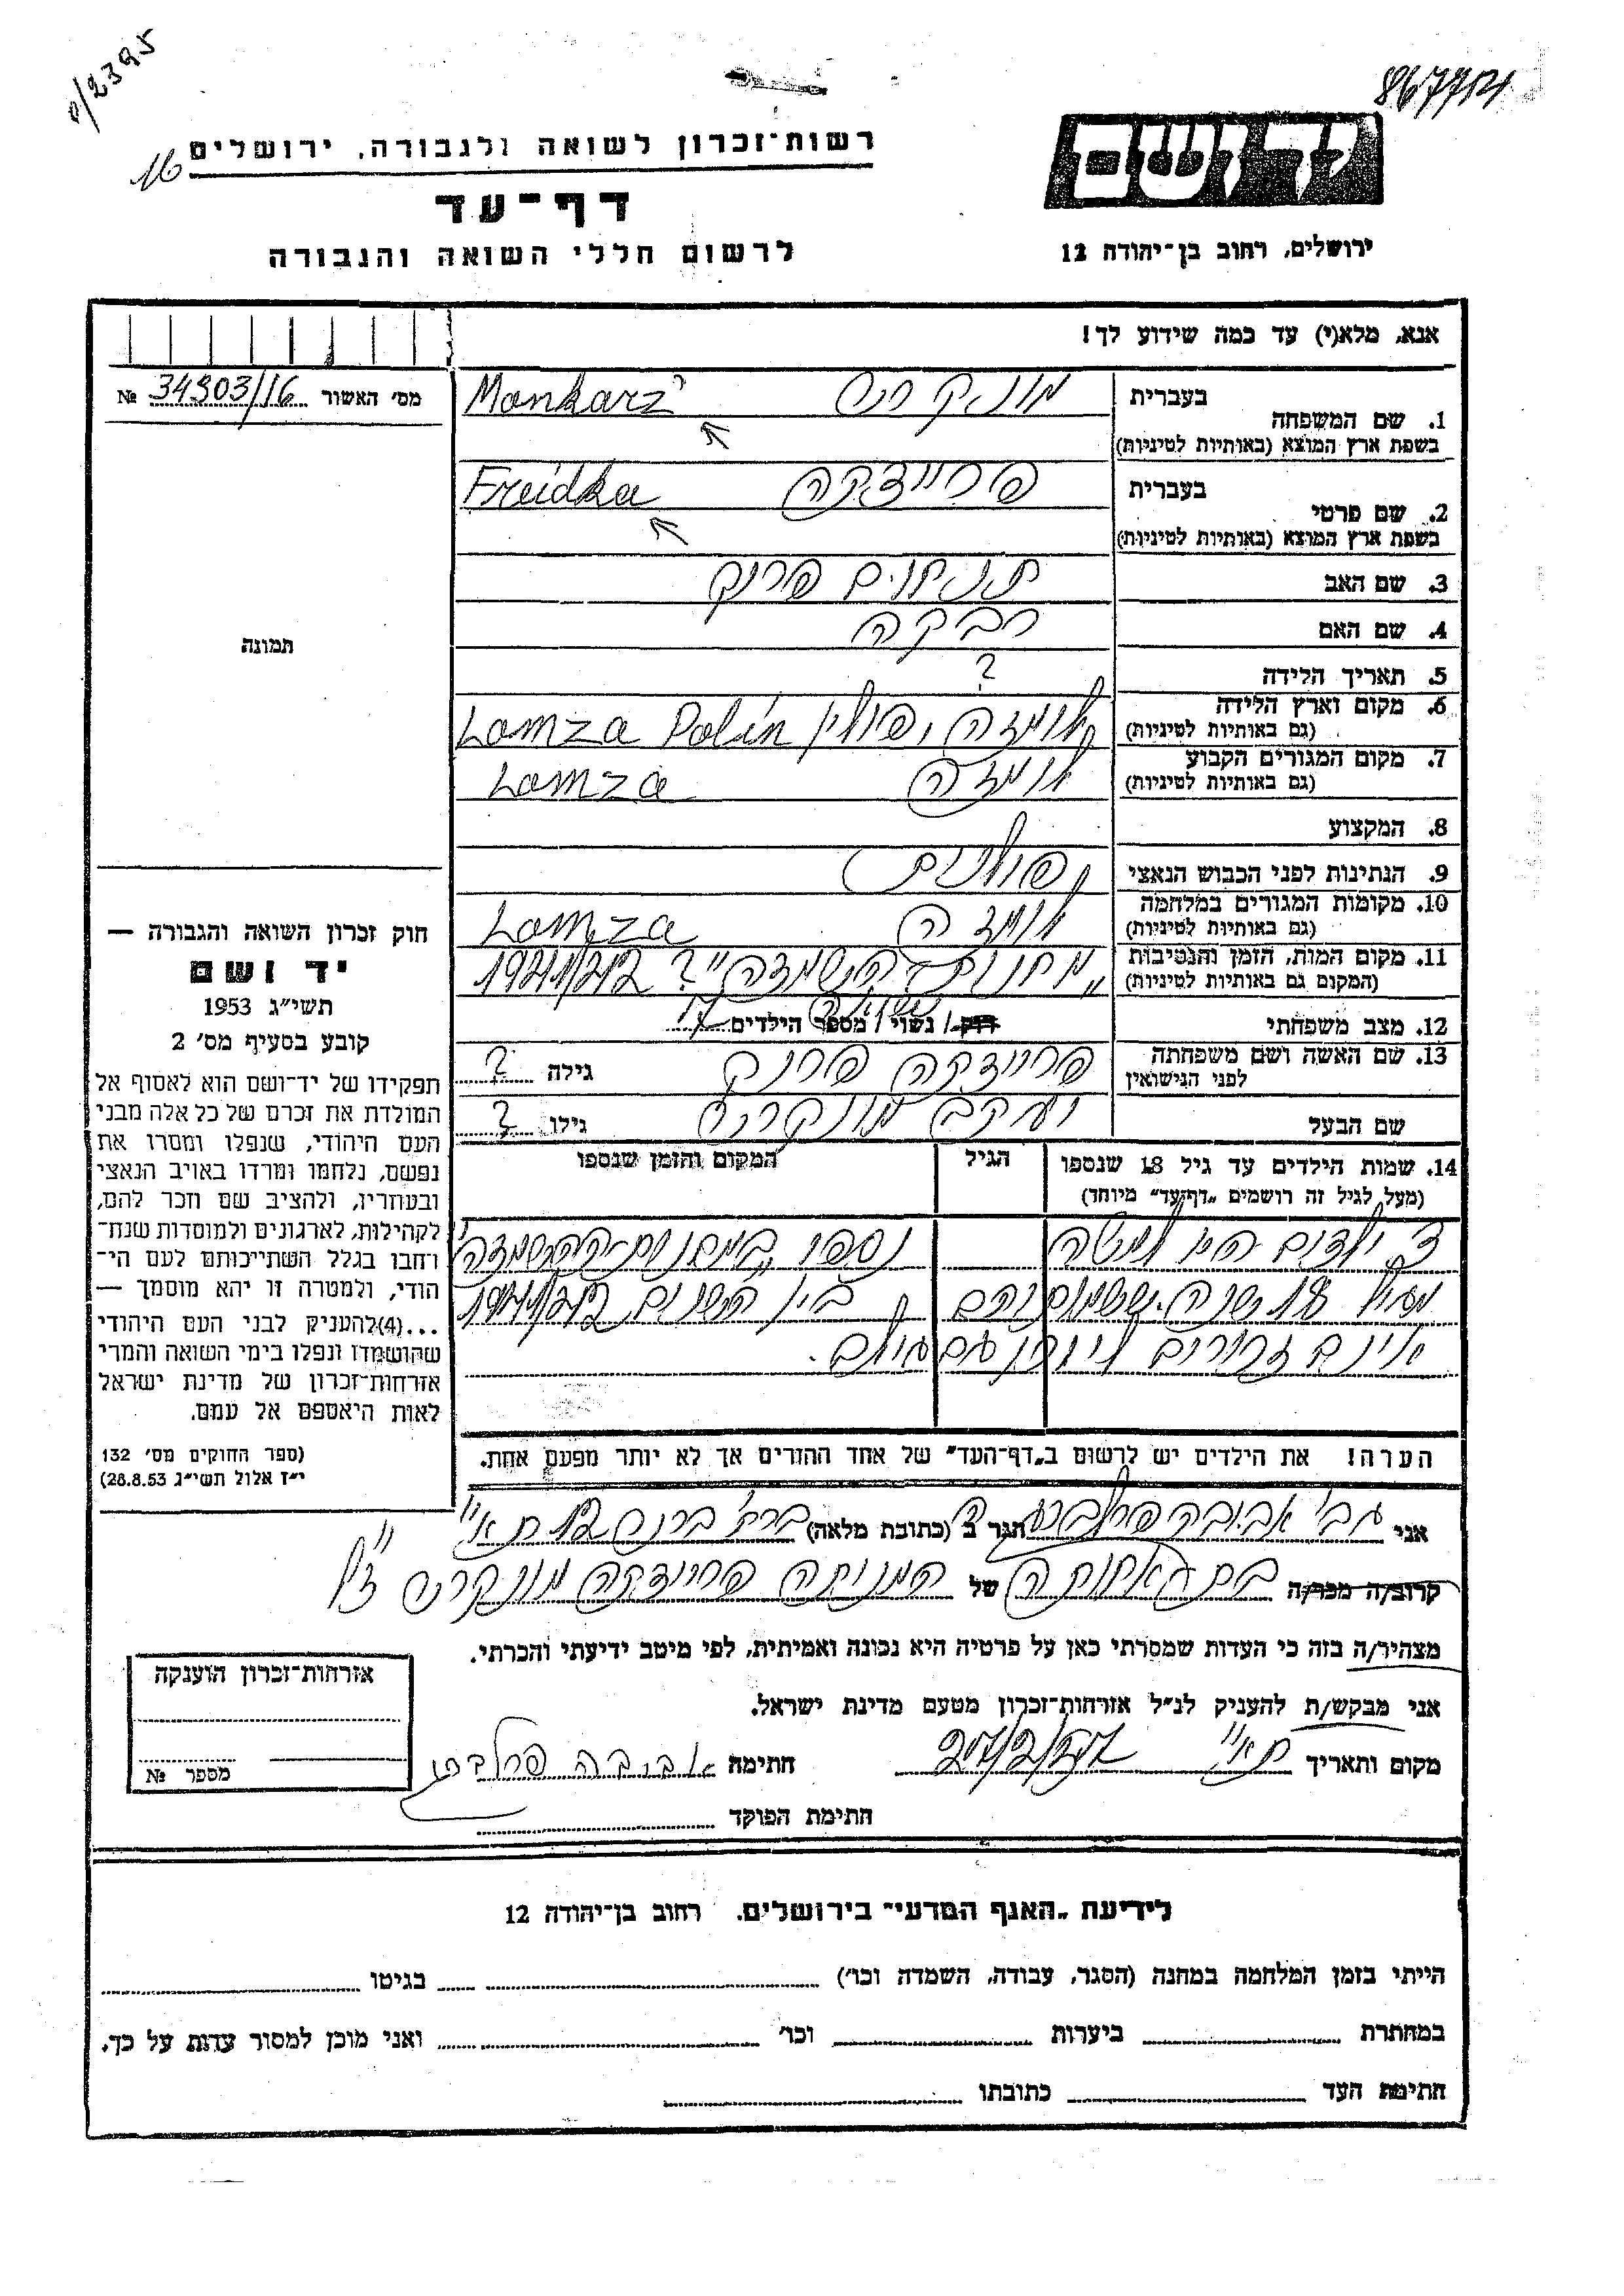 2395/ם
867754
16
רשות־זכרון לשואה ולגבורה, ירושלים
דף־עד
לרשום חללי השואה והגבורה
יד ושם
ירושלים, רחוב בן־יהודה 12
אנא, מלא(י) עד כמה שידוע לך!
מס׳ האשור 34303/16 №
תמונה
1. שם המשפחה
בעברית
מונקרז׳ Monkarz
בשפת ארץ המוצא (באותיות לטיניות)
2. שם פרטי
בעברית
פריידקה Freidka
בשפת ארץ המוצא (באותיות לטיניות)
3. שם האב תנחום פרנק
4. שם האם רבקה
5. תאריך הלידה ?
6. מקום וארץ הלידה לומזה, פולין Lomza Polin
(גם באותיות לטיניות)
7. מקום המגורים הקבוע לומזה Lomza
(גם באותיות לטיניות)
8. המקצוע
9. הנתינות לפני הכבוש הנאצי פולנית
10. מקומות המגורים במלחמה לומזה Lomza
(גם באותיות לטיניות)
11. מקום המות, הזמן והנסיבות „מחנות־השמדה״? 1941/42
(המקום גם באותיות לטיניות)
12. מצב משפחתי רוק / נשוי / מספר הילדים
13. שם האשה ושם משפחתה פריידקה פרנק גילה ?
לפני הנישואין
שם הבעל יעקב מונקרז׳ גילו ?
14. שמות הילדים עד גיל 18 שנספו
(מעל לגיל זה רושמים „דף־עד״ מיוחד)
הגיל
המקום והזמן שנספו
ילדים היו למטה נספו „במחנות־ההשמדה״
מגיל 18 שנה. ששמותיהם בין השנים 1941/42
אינם זכורים לי וכן גם גילם.
הערה! את הילדים יש לרשום ב„דף־העד״ של אחד ההורים אך לא יותר מפעם אחת.
חוק זכרון השואה והגבורה —
יד ושם
תשי״ג 1953
קובע בסעיף מס׳ 2
תפקידו של יד־ושם הוא לאסוף אל
המולדת את זכרם של כל אלה מבני
העם היהודי, שנפלו ומסרו את
נפשם, נלחמו ומרדו באויב הנאצי
ובעוזריו, ולהציב שם וזכר להם,
לקהילות, לארגונים ולמוסדות שנח־
רחבו בגלל השתייכותם לעם הי־
הודי, ולמטרה זו יהא מוסמך —
...(4)להעניק לבני העם היהודי
שהושמדו ונפלו בימי השואה והמרי
אזרחות־זכרון של מדינת ישראל
לאות היאספם אל עמם.
(ספר החוקים מס׳ 132
י״ז אלול תשי״ג 28.8.53)
אני גבי אביבה הגר ב (כתובת מלאה) ת״א
קרוב/ה מכר/ה בת אחותה של המנוחה פריידקה מונקרז׳ ז״ל
מצהיר/ה בזה כי העדות שמסרתי כאן על פרטיה היא נכונה ואמיתית, לפי מיטב ידיעתי והכרתי.
אני מבקש/ת להעניק לנ״ל אזרחות־זכרון מטעם מדינת ישראל.
מקום ותאריך ת״א חתימה אביבה
חתימת הפוקד
אזרחות־זכרון הוענקה
מספר №
לידיעת „האגף המדעי״ בירושלים, רחוב בן־יהודה 12
הייתי בזמן המלחמה במחנה (הסגר, עבודה, השמדה וכו׳) בגיטו
במחתרת ביערות וכו׳ ואני מוכן למסור עדות על כך.
חתימת העד כתובתו